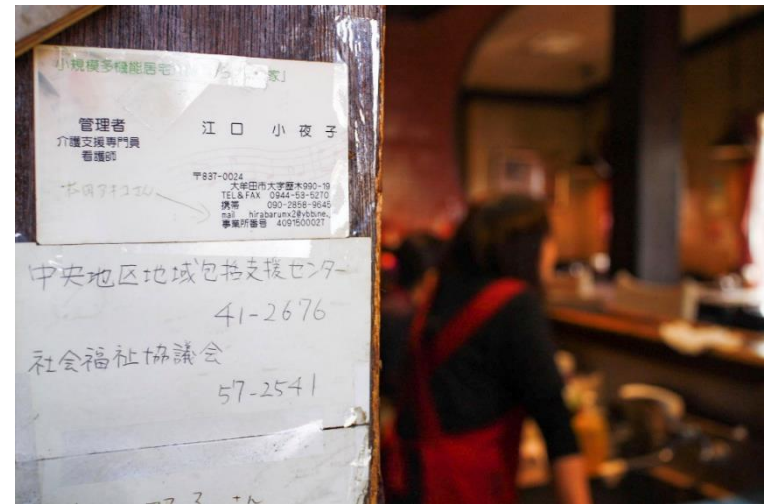 小規模多機能居宅 家」
管理者 江口 小夜子
介護支援専門員
看護師
〒837-0024
大牟田市大字歴木990-19
TEL&FAX 0944-53-5270
携帯 090-2858-9645
mail hirabarumx2@ybb.ne.
事業所番号 4091500027
さん
中央地区地域包括支援センター
41-2676
社会福祉協議会
57-2541
さん